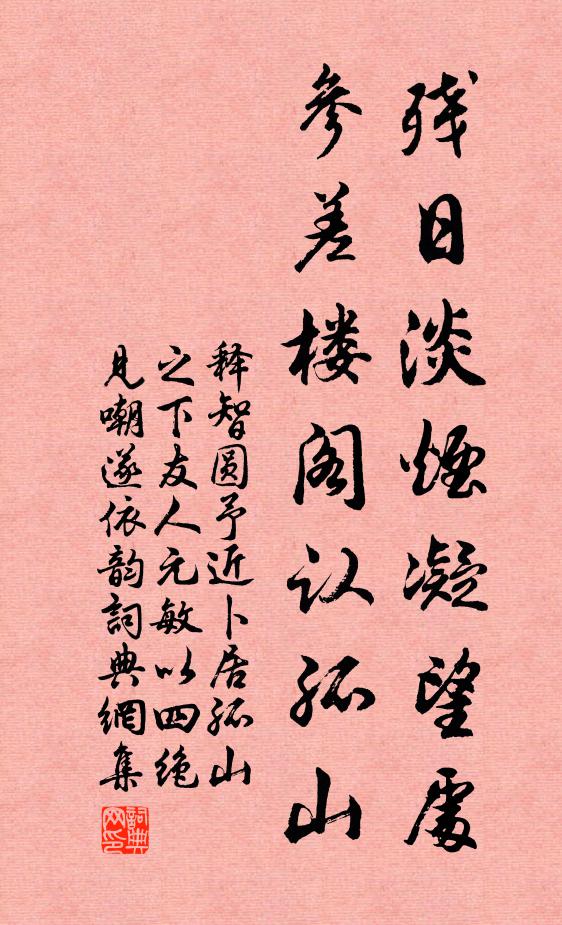 残日淡煙凝望處
參差楼阁认孤山
释智圆予近卜居孤山
之下友人元敏以四绝
见嘲遂依韵詞典網集
詞典网印